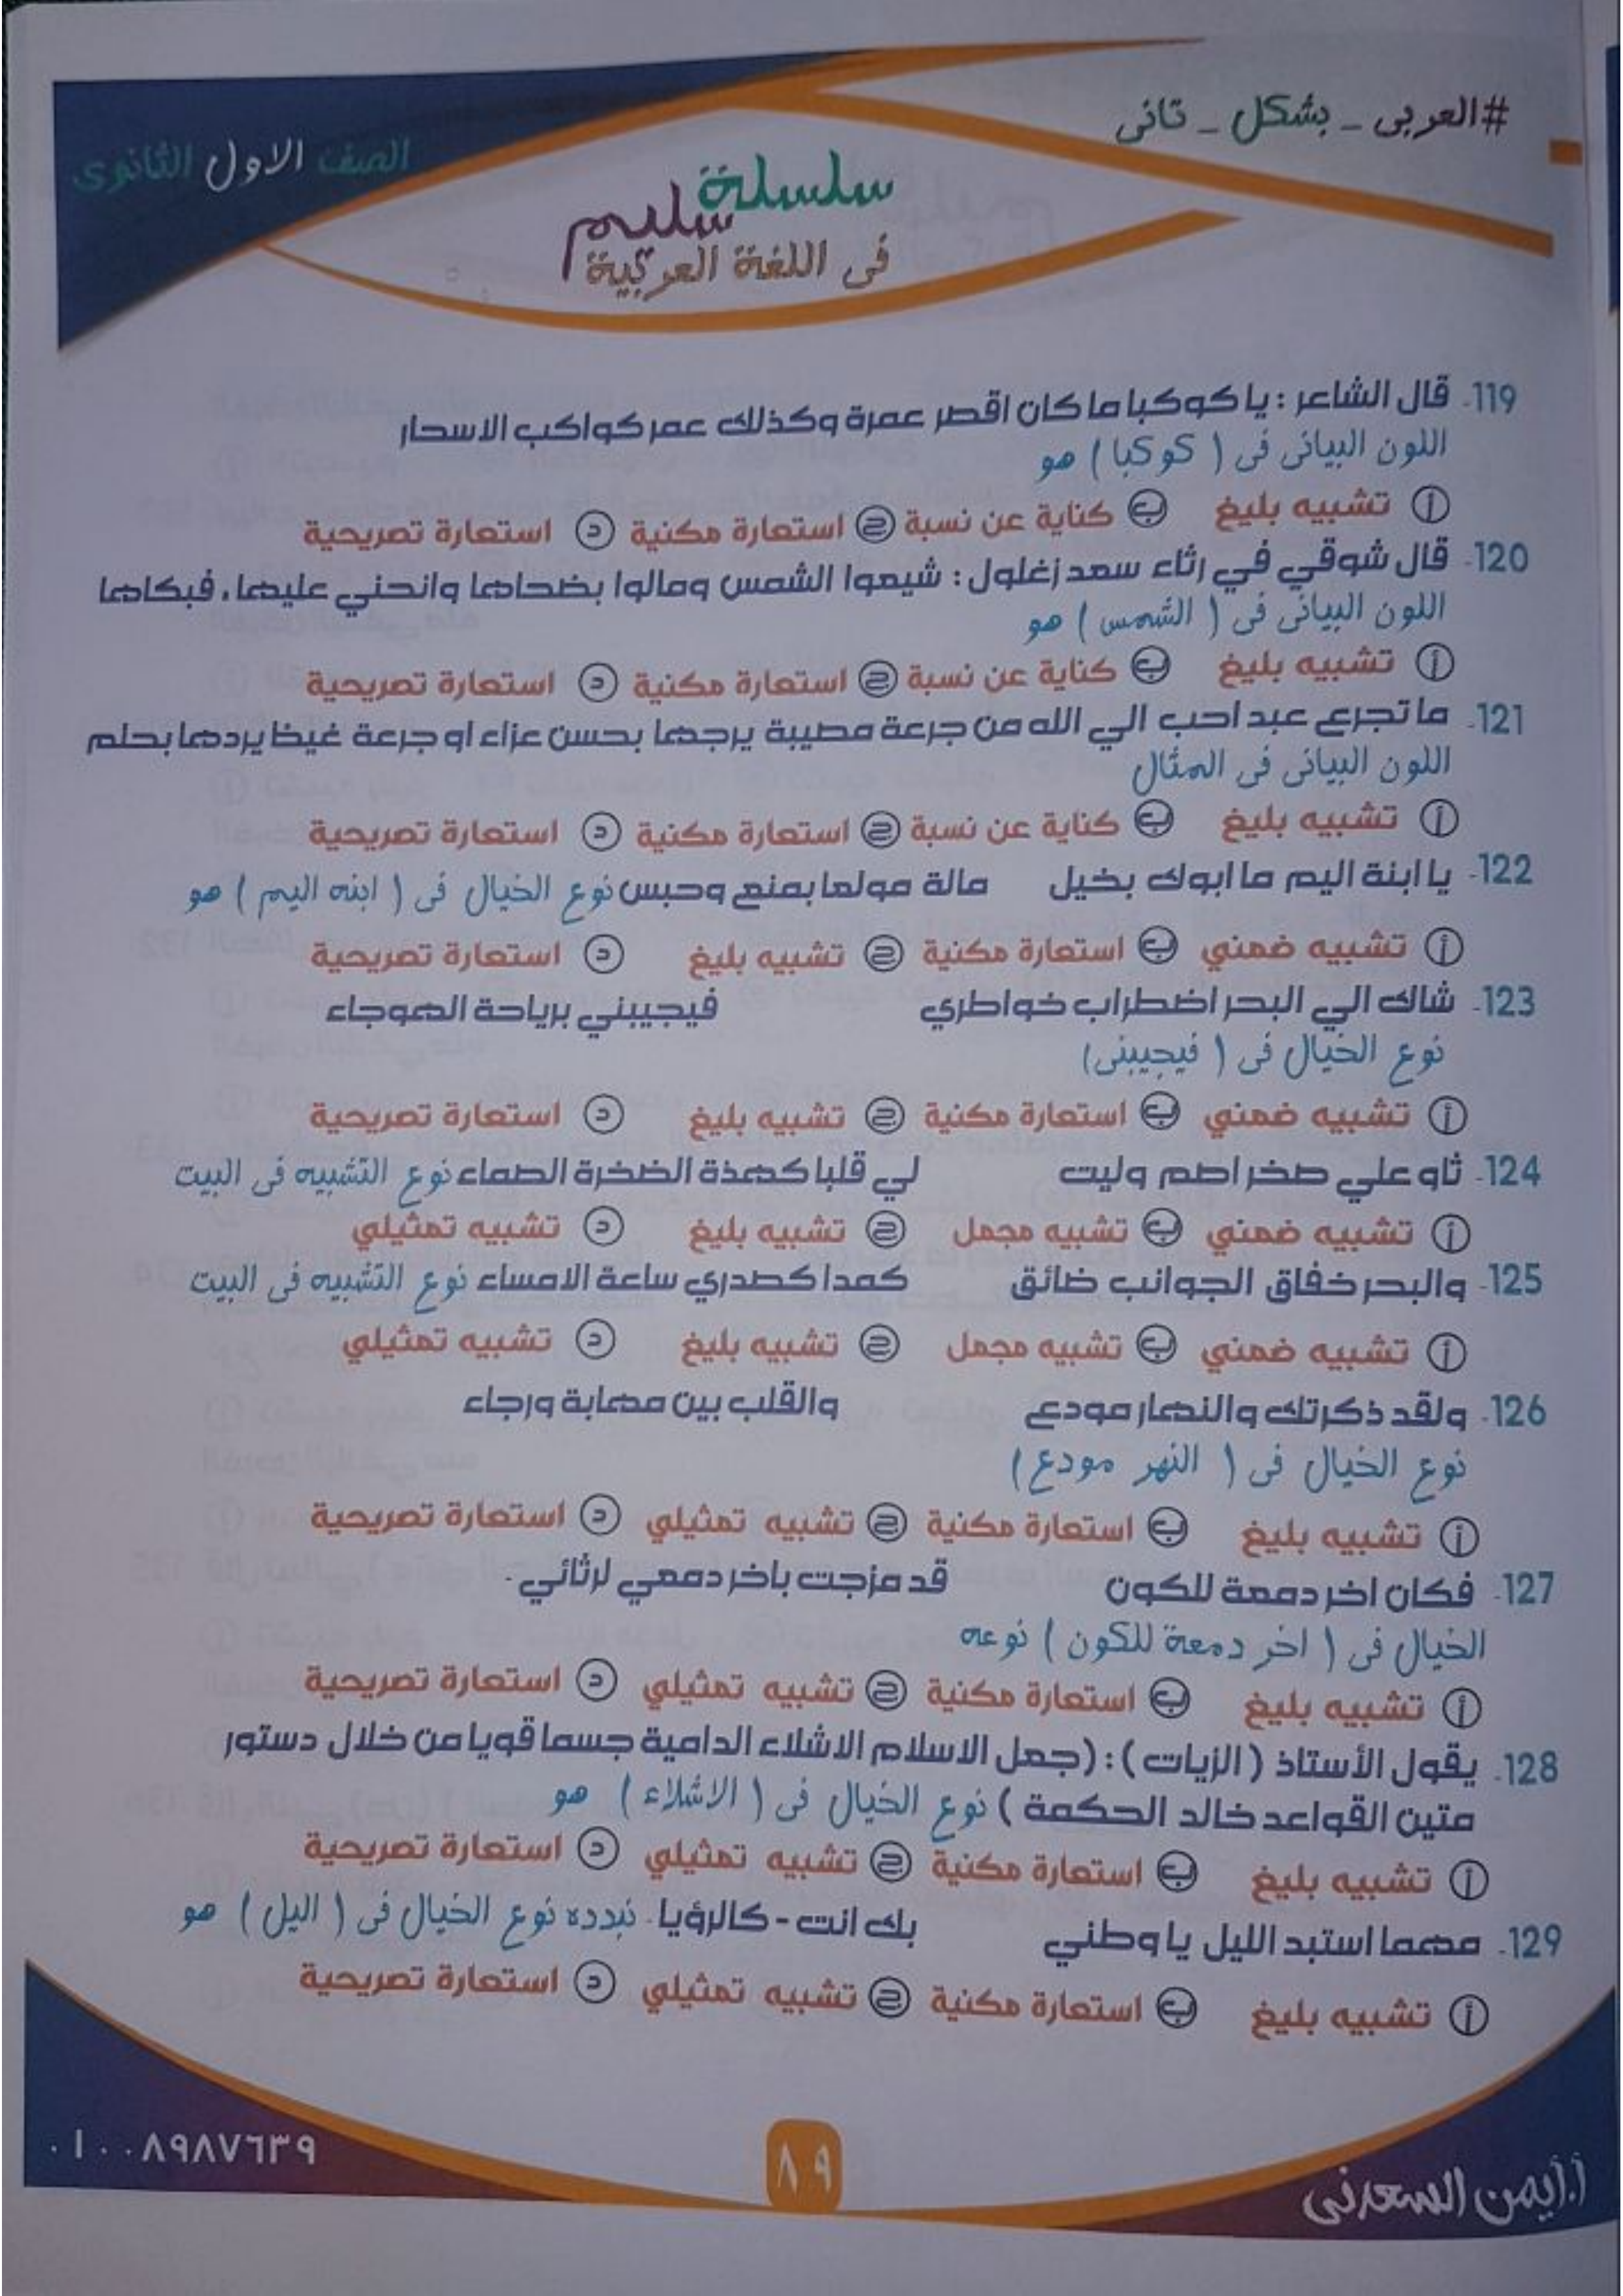 #العربى _ بشكل _ تانى
الصف الاول الثانوى
سلسلة
سليم
فى اللغة العربية
119- قال الشاعر : يا كوكبا ما كان اقصر عمرة وكذلك عمر كواكب الاسحار
اللون البيانى فى ( كوكبا ) هو
أ تشبيه بليغ ب كناية عن نسبة ج استعارة مكنية د استعارة تصريحية
120- قال شوقي في رثاء سعد زغلول : شيعوا الشمس ومالوا بضحاها وانحني عليها، فبكاها
اللون البيانى فى ( الشمس ) هو
أ تشبيه بليغ ب كناية عن نسبة ج استعارة مكنية د استعارة تصريحية
121- ما تجرع عبد احب الي الله من جرعة مصيبة يرجها بحسن عزاء او جرعة غيظ يردها بحلم
اللون البيانى فى المثال
أ تشبيه بليغ ب كناية عن نسبة ج استعارة مكنية د استعارة تصريحية
122- يا ابنة اليم ما ابوك بخيل مالة مولعا بمنع وحبس نوع الخيال فى ( ابنه اليم ) هو
أ تشبيه ضمني ب استعارة مكنية ج تشبيه بليغ د استعارة تصريحية
123- شاك الي البحر اضطراب خواطري فيجيبني برياحة الهوجاء
نوع الخيال فى ( فيجيبنى)
أ تشبيه ضمني ب استعارة مكنية ج تشبيه بليغ د استعارة تصريحية
124- ثاو علي صخر اصم وليت لي قلبا كهذة الضخرة الصماء نوع التشبيه فى البيت
أ تشبيه ضمني ب تشبيه مجمل ج تشبيه بليغ د تشبيه تمثيلي
125- والبحر خفاق الجوانب ضائق كمدا كصدري ساعة الامساء نوع التشبيه فى البيت
أ تشبيه ضمني ب تشبيه مجمل ج تشبيه بليغ د تشبيه تمثيلي
126- ولقد ذكرتك والنهار مودع والقلب بين مهابة ورجاء
نوع الخيال فى ( النهر مودع )
أ تشبيه بليغ ب استعارة مكنية ج تشبيه تمثيلي د استعارة تصريحية
127- فكان اخر دمعة للكون قد مزجت باخر دمعي لرثائي -
الخيال فى ( اخر دمعة للكون ) نوعه
أ تشبيه بليغ ب استعارة مكنية ج تشبيه تمثيلي د استعارة تصريحية
128- يقول الأستاذ ( الزيات ) : (جعل الاسلام الاشلاء الدامية جسما قويا من خلال دستور
متين القواعد خالد الحكمة ) نوع الخيال فى ( الاشلاء ) هو
أ تشبيه بليغ ب استعارة مكنية ج تشبيه تمثيلي د استعارة تصريحية
129- مهما استبد الليل يا وطني بك انت - كالرؤيا - نبدده نوع الخيال فى ( اليل ) هو
أ تشبيه بليغ ب استعارة مكنية ج تشبيه تمثيلي د استعارة تصريحية
٠١٠٠٨٩٨٧٦٣٩
٨٩
أ.أيمن السعدنى